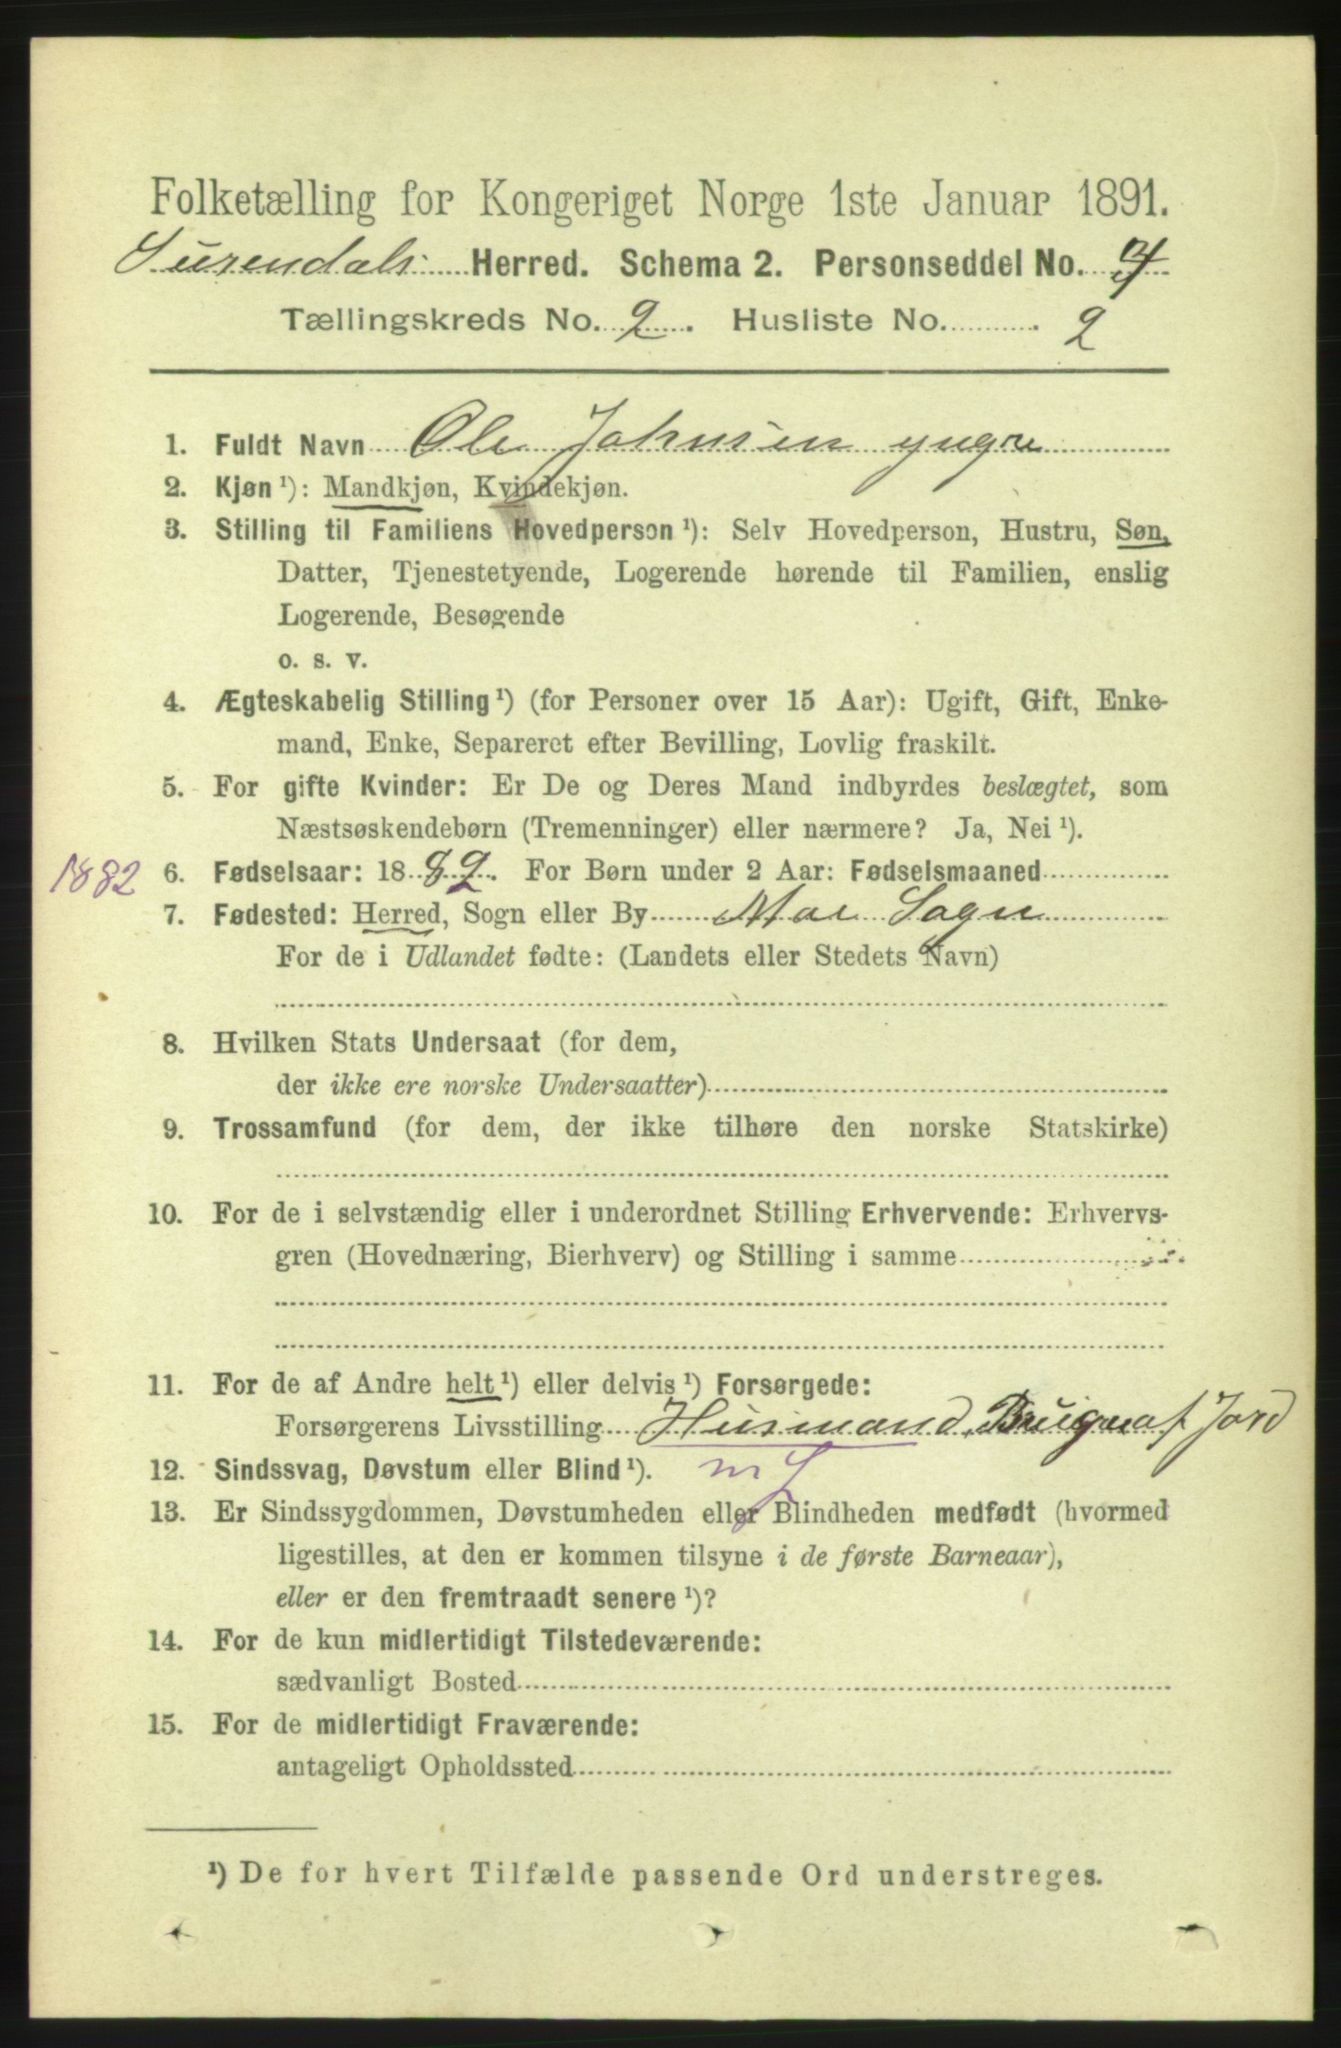 Folketælling for Kongeriget Norge 1ste Januar 1891.
Surendals Herred. Schema 2. Personseddel No.
Tællingskreds No. 2. Husliste No. 2
1. Fuldt Navn Ole Johnsen yngre
2. Kjøn ¹): Mandkjøn, Kvindekjøn.
3. Stilling til Familiens Hovedperson ¹): Selv Hovedperson, Hustru, Søn,
Datter, Tjenestetyende, Logerende hørende til Familien, enslig
Logerende, Besøgende
o. s. v.
4. Ægteskabelig Stilling ¹) (for Personer over 15 Aar): Ugift, Gift, Enke-
mand, Enke, Separeret efter Bevilling, Lovlig fraskilt.
5. For gifte Kvinder: Er De og Deres Mand indbyrdes beslægtet, som
Næstsøskendebørn (Tremenninger) eller nærmere? Ja, Nei ¹).
1882 6. Fødselsaar: 1882. For Børn under 2 Aar: Fødselsmaaned
7. Fødested: Herred, Sogn eller By Moe Sogn
For de i Udlandet fødte: (Landets eller Stedets Navn)
8. Hvilken Stats Undersaat (for dem,
der ikke ere norske Undersaatter)
9. Trossamfund (for dem, der ikke tilhøre den norske Statskirke)
10. For de i selvstændig eller i underordnet Stilling Erhvervende: Erhvervs-
gren (Hovednæring, Bierhverv) og Stilling i samme
11. For de af Andre helt ¹) eller delvis ¹) Forsørgede:
Forsørgerens Livsstilling Husmand Bruger af Jord
12. Sindssvag, Døvstum eller Blind ¹).
13. Er Sindssygdommen, Døvstumheden eller Blindheden medfødt (hvormed
ligestilles, at den er kommen tilsyne i de første Barneaar),
eller er den fremtraadt senere ¹)?
14. For de kun midlertidigt Tilstedeværende:
sædvanligt Bosted
15. For de midlertidigt Fraværende:
antageligt Opholdssted
¹) De for hvert Tilfælde passende Ord understreges.